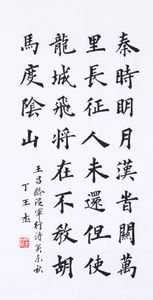 秦時明月漢旹關萬
里長征人未還但使
龍城飛將在不教胡
馬度陰山
王昌齡從軍行詩癸未秋
丁王杰